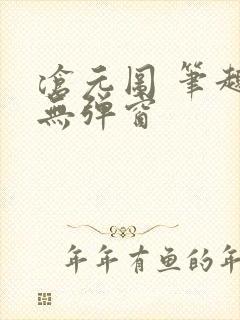 滄元圖 筆趣
無彈窗
年年有鱼的年